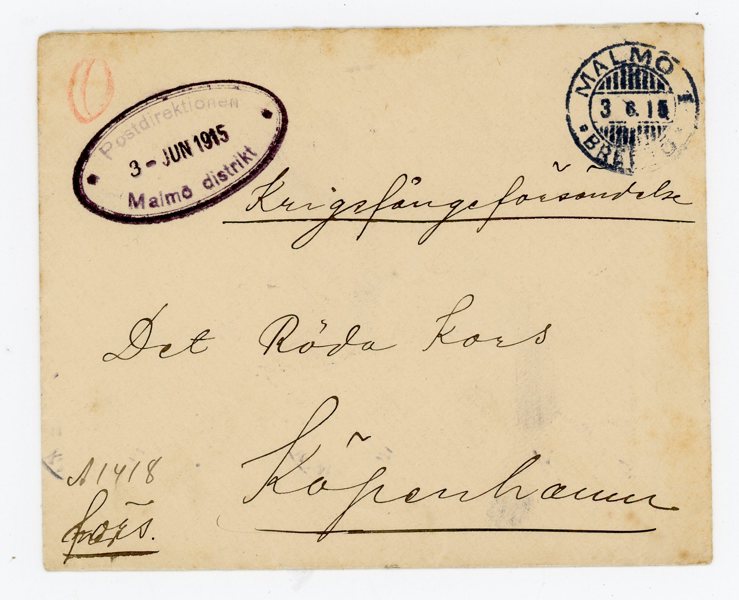 Postdirektionen
3 - JUN 1915
Malmö distrikt
MALMÖ 1
3 6. 15
BREF
Krigsfångeförsändelse
Det Röda Kors
Köpenhamn
A 1418
förs.